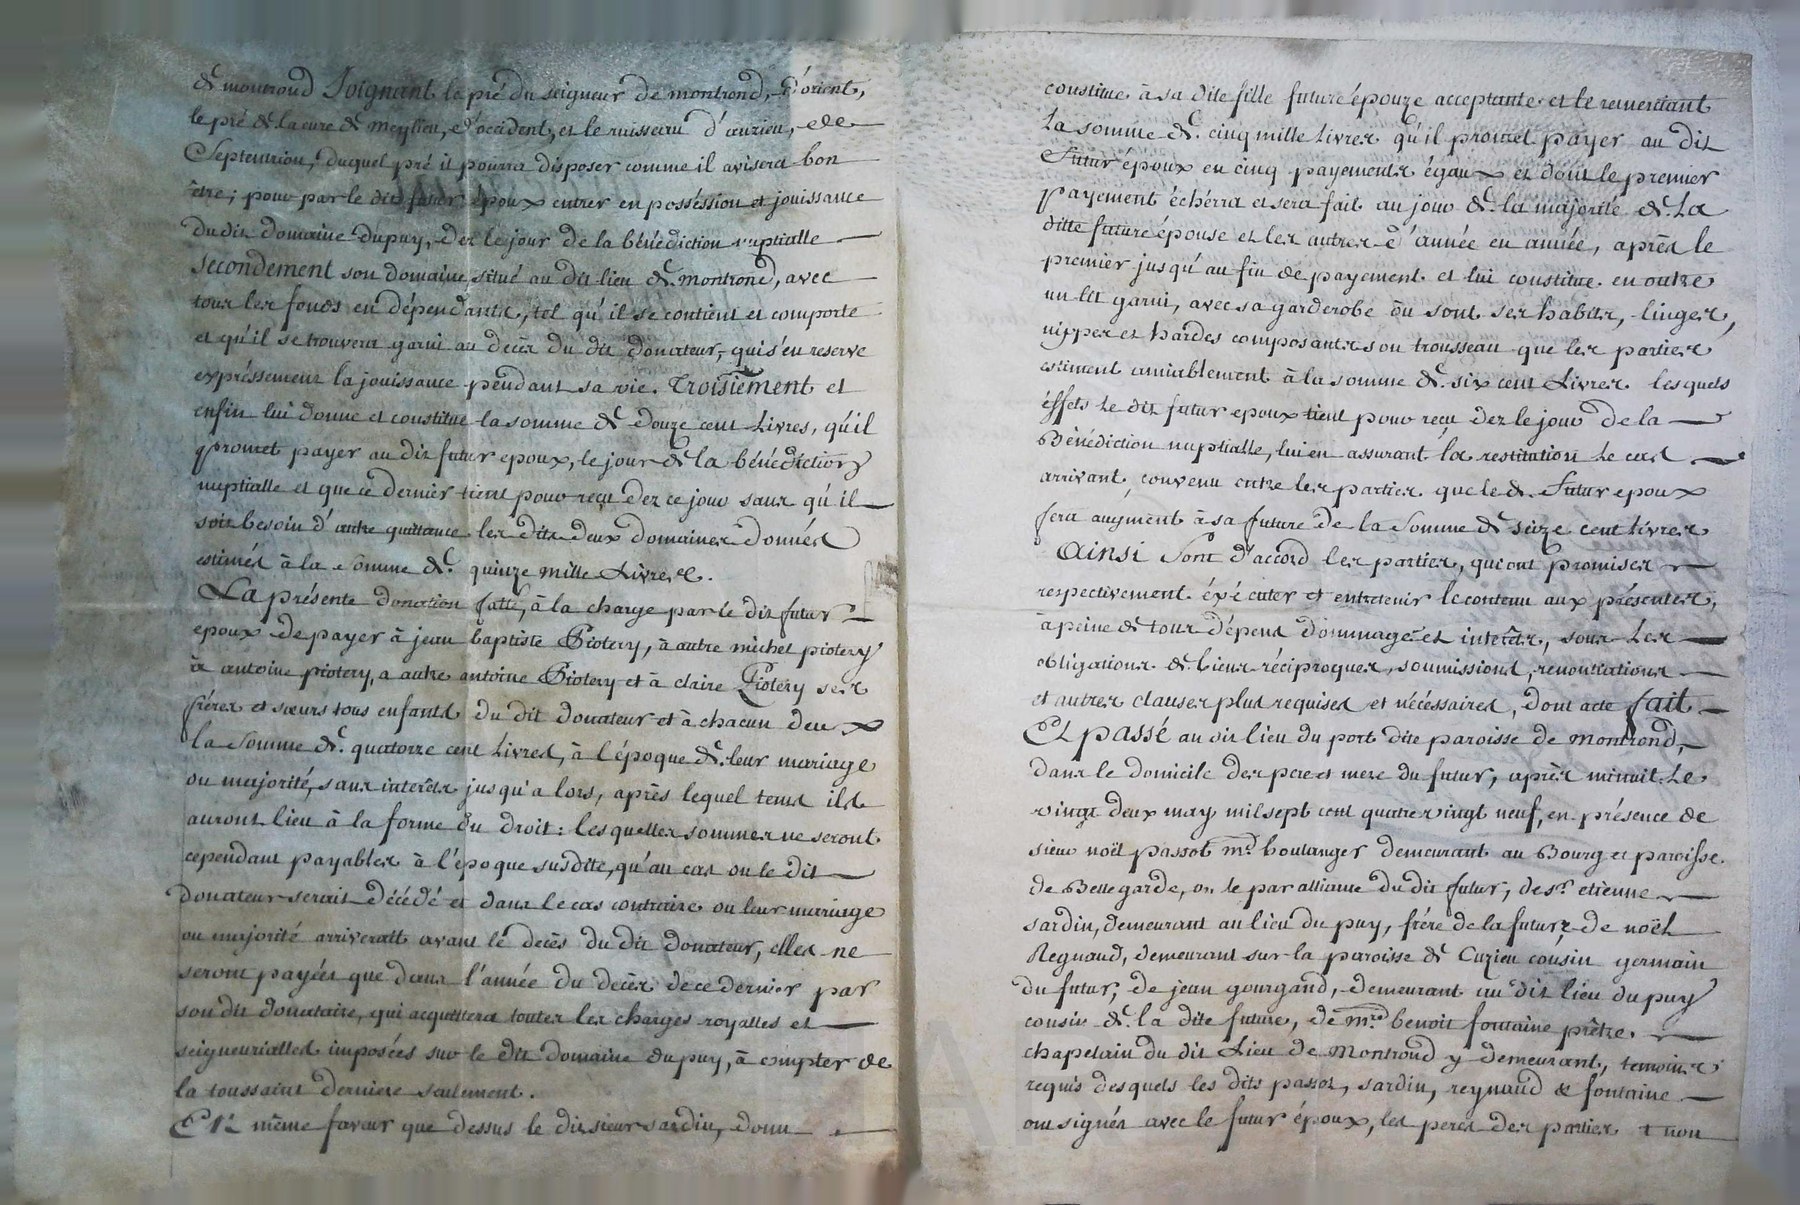 de montrond Joignant le pré du seigneur de montrond, d'orient,
le pré de la cure de meylieu, d'occident, et le ruisseau d'auzieu, de
Septentrion, duquel pré il pourra disposer comme il avisera bon
être; pour par le dit futur époux entrer en posséssion et jouissance
du dit domaine dupuy, dez le jour de la bénédiction nuptialle
Secondement son domaine situé au dit lieu de montrond, avec
tous les fonds en dépendants, tel qu'il se contient et comporte
et qu'il se trouvera garni au decès du dit donateur, qui s'en reserve
expréssement la jouissance pendant sa vie. Troisiement et
enfin lui donne et constitue la somme de douze cent Livres, qu'il
promet payer au dit futur epoux, le jour de la bénédiction
nuptialle et que ce dernier tient pour reçu dez ce jour sans qu'il
soit besoin d'autre quittance les dits deux domaines donnés
estimés à la somme de quinze mille Livres.
La présente donation faite, à la charge par le dit futur
epoux de payer à jean baptiste Piotery, à autre michel piotery
à antoine piotery, a autre antoine Piotery et à claire Piotery ses
fréres et sœurs tous enfants du dit donateur et à chacun deux
la Somme de quatorze cent Livres, à l'époque de leur mariage
ou majorité, sans interêts jusqu'a lors, après lequel tems ils
auront lieu à la forme du droit: lesquelles sommes ne seront
cependant payables à l'époque susdite, qu'au cas ou le dit
donateur serait décédé et dans le cas contraire ou leur mariage
ou majorité arriverait avant le decès du dit donateur, elles ne
seront payées que dans l'année du decès de ce dernier par
son dit donataire, qui acquittera toutes les charges royalles et
seigneurialles imposées sur le dit domaine du puy, à compter de
la toussaint derniere seulement.
Et même faveur que dessus le dit sieur sardin, donne
constitue à sa dite fille future épouze acceptante et le remerciant
La somme de cinq mille Livres qu'il promet payer au dit
Futur époux en cinq payements égaux et dont le premier
payement échérra et sera fait au jour de la majorité de La
ditte future épouse et les autres d'année en année, après le
premier jusqu'au fin de payement et lui constitue en outre
un lit garni, avec sa garderobe ou sont ses habits, linges,
nippes et hardes composants son trousseau que les parties
estiment amiablement à la somme de six cent Livres lesquels
éffets le dit futur epoux tient pour reçu dez le jour de la
Bénédiction nuptialle, lui en assurant la restitution le cas
arrivant, convenu entre les parties que le d. Futur epoux
fera augment à sa future de la Somme de seize cent Livres
Ainsi Sont d'accord les parties, qui ont promises
respectivement éxécuter et entretenir le contenu aux présentes,
à peine de tous dépens dommages et interêts, sous les
obligations de biens réciproques, soumissions, renonciations
et autres clauses plus requises et nécéssaires, dont acte fait
Et passé au dit lieu du port dite paroisse de montrond,
dans le domicile des pere et mere du futur, après minuit Le
vingt deux may mil sept cent quatre vingt neuf, en présence de
sieur noël passot md. boulanger demeurant au Bourg et paroisse
de Bellegarde, oncle par alliance du dit futur, de sr. etienne
sardin, demeurant au lieu du puy, frére de la future de noël
Regnaud, demeurant sur la paroisse de Cuzieu cousin germain
du futur, de jean gourgand, demeurant au dit lieu du puy
cousin de la dite future, de mre benoit fontaine prêtre
chapelain du dit Lieu de Montrond y demeurant, temoins
requis desquels les dits passot, sardin, reynaud & fontaine
ont signés avec le futur époux, les peres des parties & non